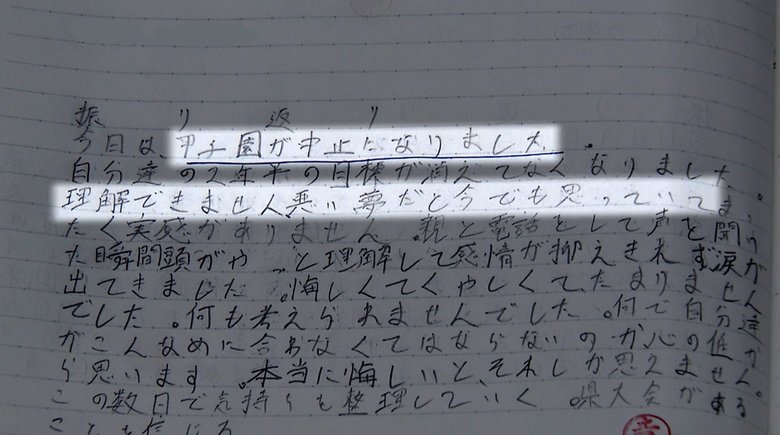 振り返り
今日は、甲子園が中止になりました。
自分達の2年半の目標が消えてなくなりました。
理解できません悪い夢だと今でも思っていてま
たく実感がありません。親と電話をして声を聞
た瞬間頭がや、と理解して感情が抑えきれず涙が
出てきました。悔しくてくやしくてたまりません
でした。何も考えられませんでした。何で自分達
がこんなめに合わなくてはならないのか心の底か
ら思います。本当に悔しいと、それしか思えません。
この数日で気持ちを整理していく。県大会がある
ことを信じる